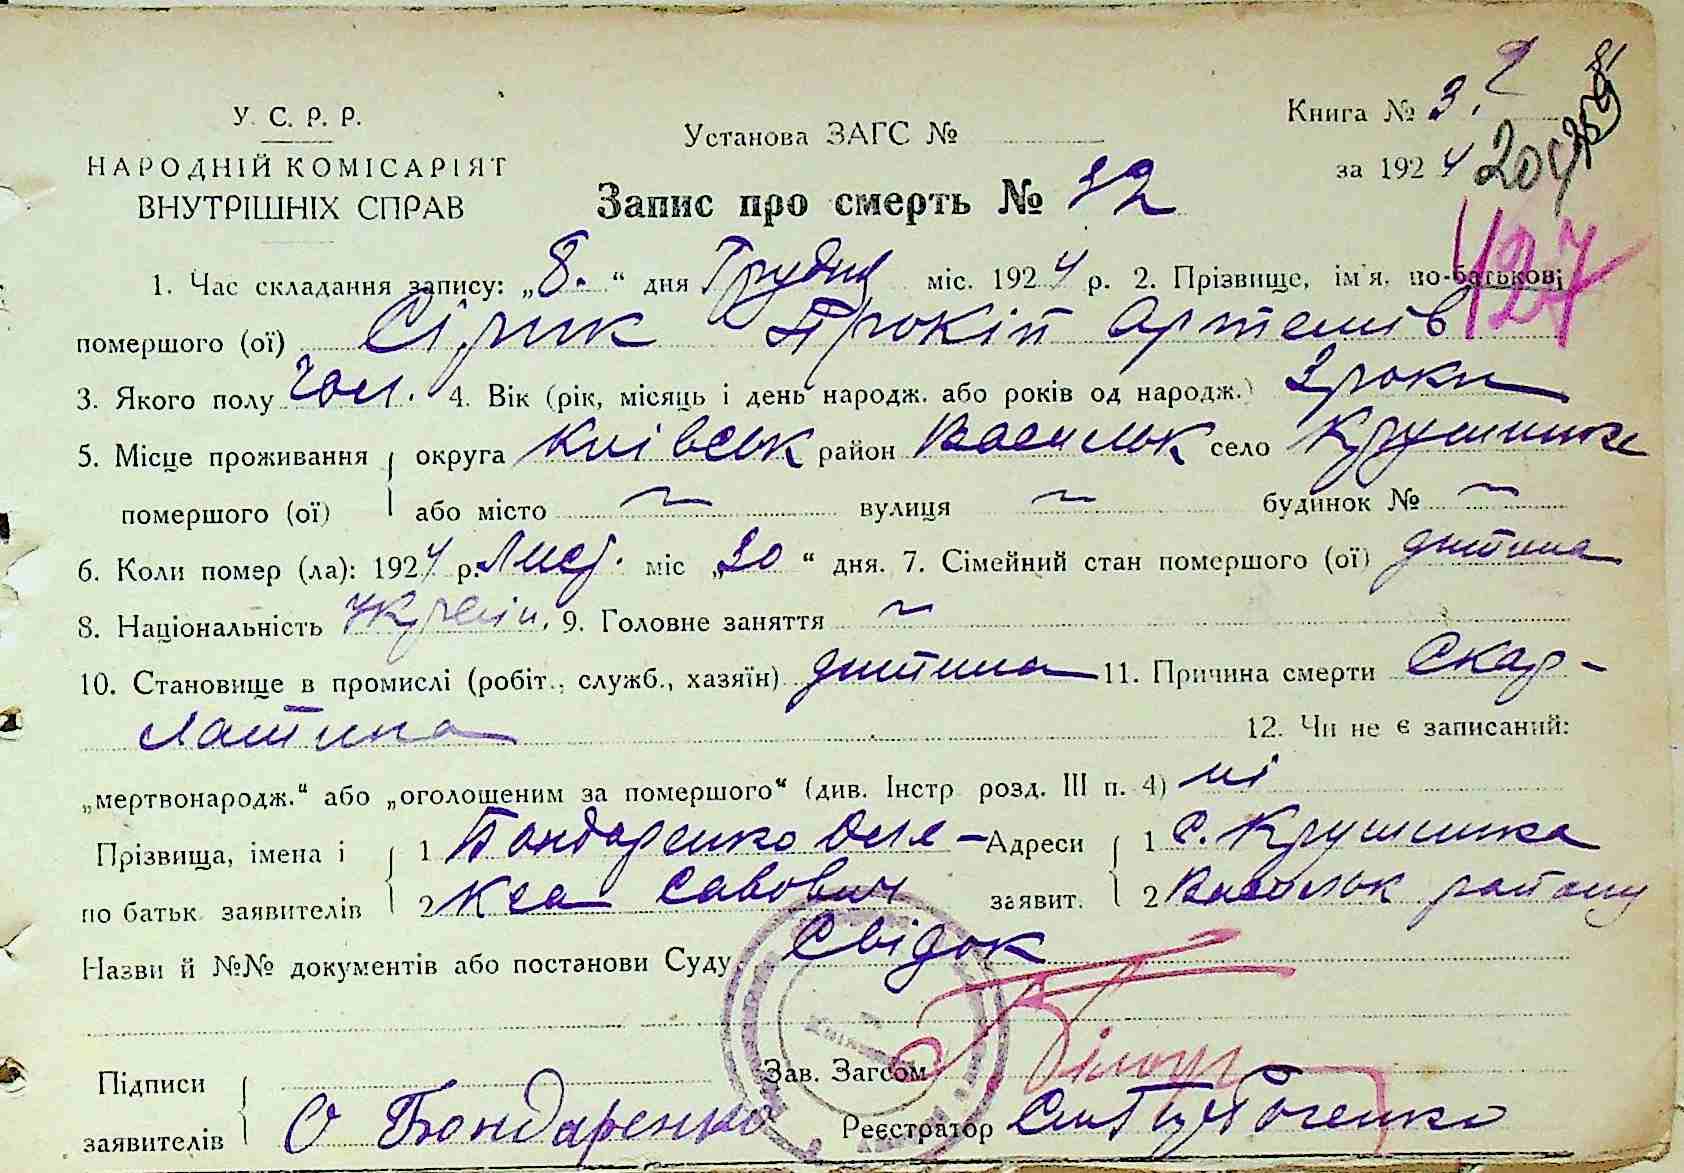 У. С. Р. Р.
НАРОДНІЙ КОМІСАРІЯТ
ВНУТРІШНІХ СПРАВ
Установа ЗАГС №
Книга № 3.
за 1924
204
427
Запис про смерть № 32
1. Час складання запису: „8.“ дня Грудня міс. 1924 р. 2. Прізвище, ім'я, по-батькові
помершого (ої) Сірик Прокіп Артемів
3. Якого полу чол. 4. Вік (рік, місяць і день народж. або років од народж.) 3 роки
5. Місце проживання округа Київськ район Васильк село Крушинка
помершого (ої) або місто ~ вулиця ~ будинок № ~
6. Коли помер (ла): 1924 р. Лист. міс „30“ дня. 7. Сімейний стан помершого (ої) дитина
8. Національність Україн. 9. Головне заняття ~
10. Становище в промислі (робіт., служб., хазяїн) дитина 11. Причина смерти Скар-
латина 12. Чи не є записаний:
„мертвонародж.“ або „оголошеним за помершого“ (див. Інстр розд. III п. 4) ні
Прізвища, імена і 1 Бондаренко Оле- Адреси 1 с. Крушинка
по батьк заявителів 2 кса Савович заявит. 2 Васильк району
Назви й №№ документів або постанови Суду Свідок
Підписи Зав. Загсом
заявителів О Бондаренко Реєстратор